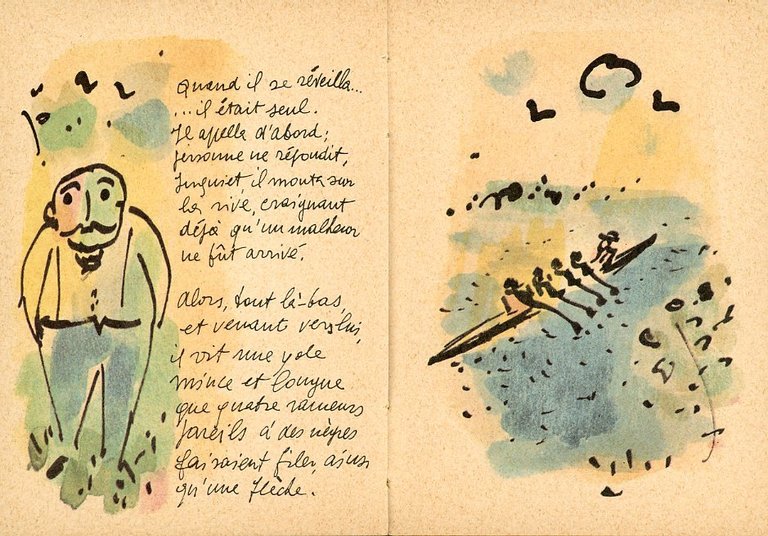 Quand il se réveilla...
...il était seul.
Il appella d'abord;
personne ne répondit,
Inquiet il monta sur
la rive, craignant
déjà qu'un malheur
ne fût arrivé.
Alors, tout là-bas,
et venant vers lui,
il vit une yole
mince et longue
que quatre rameurs
pareils à des nègres
faisaient filer, ainsi
qu'une flèche.